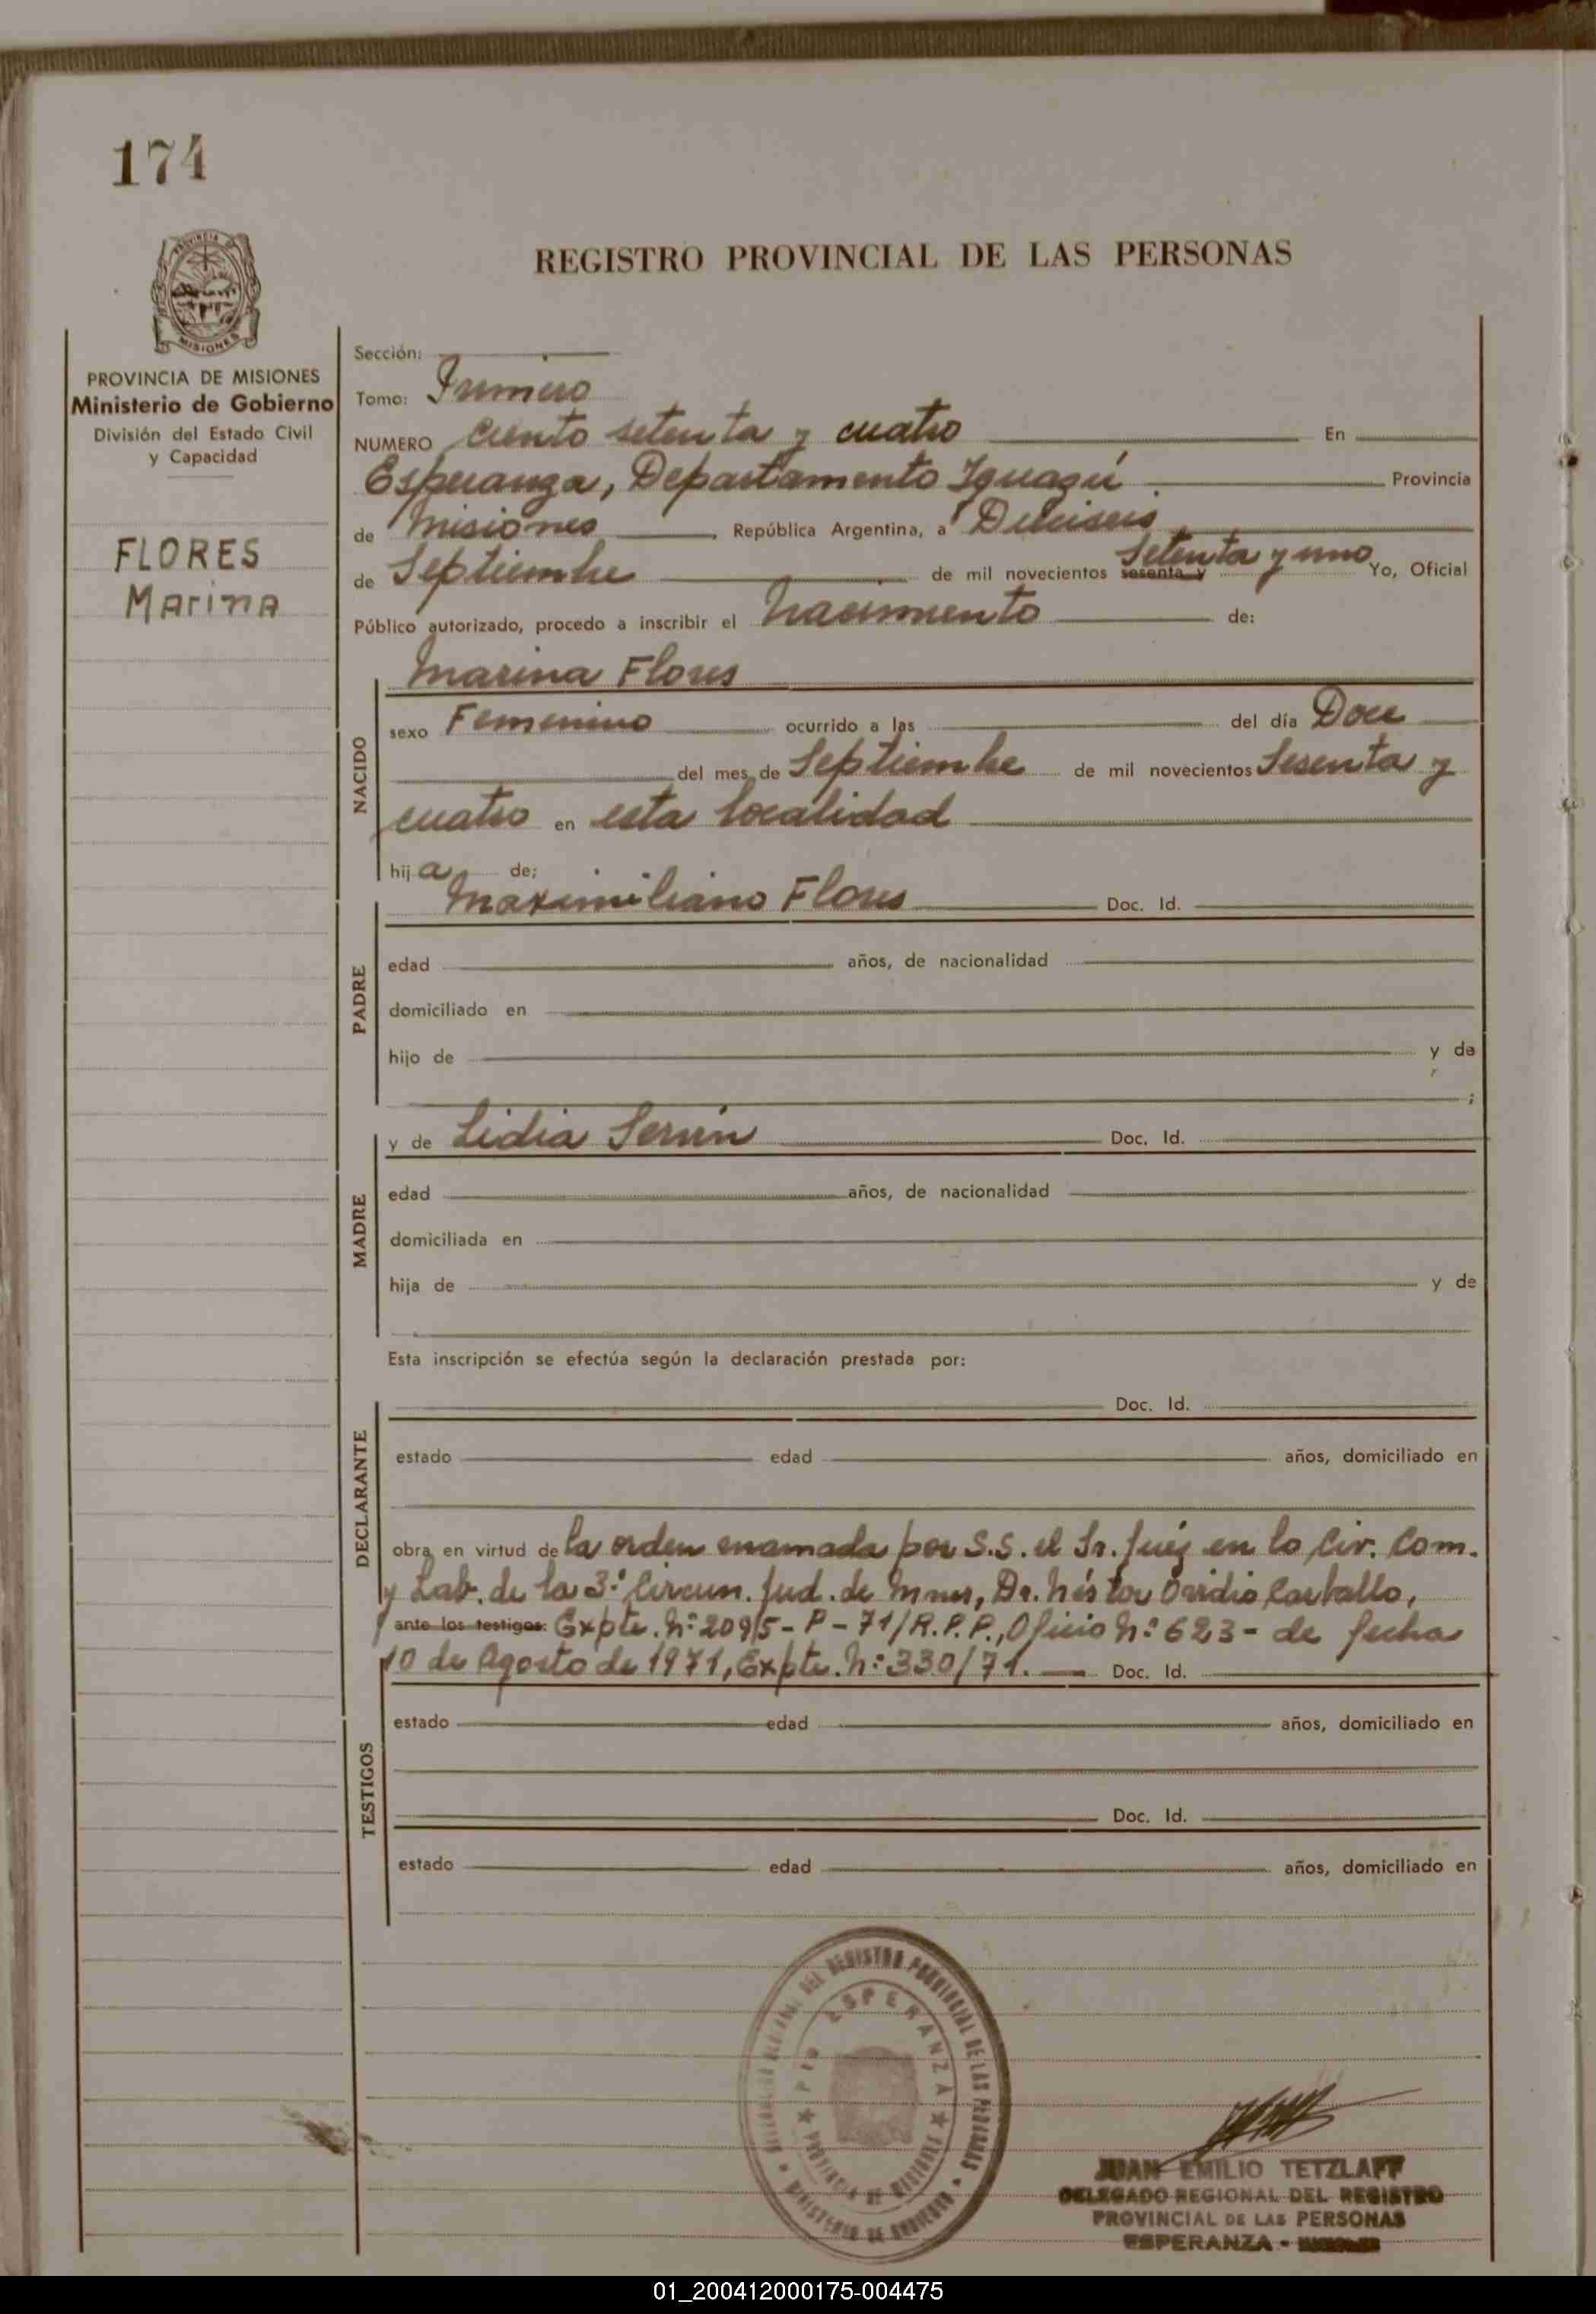 174
PROVINCIA DE
MISIONES
REGISTRO PROVINCIAL DE LAS PERSONAS
PROVINCIA DE MISIONES
Ministerio de Gobierno
División del Estado Civil
y Capacidad
FLORES
Marina
Sección:
Tomo: Primero
NUMERO Ciento setenta y cuatro En
Esperanza, Departamento Iguazú Provincia
de Misiones, República Argentina, a Dieciseis
de Septiembre de mil novecientos sesenta y Setenta y uno Yo, Oficial
Público autorizado, procedo a inscribir el Nacimiento de:
Marina Flores
NACIDO
sexo Femenino ocurrido a las del día Doce
del mes de Septiembre de mil novecientos Sesenta y
cuatro en esta localidad
hija de:
Maximiliano Flores Doc. Id.
PADRE
edad años, de nacionalidad
domiciliado en
hijo de y de
;
y de Lidia Servín Doc. Id.
MADRE
edad años, de nacionalidad
domiciliada en
hija de y de
Esta inscripción se efectúa según la declaración prestada por:
Doc. Id.
DECLARANTE
estado edad años, domiciliado en
obra en virtud de la orden emamada por S.S. el Sr. Juéz en lo Civ. Com.
y Lab. de la 3º Circun. Jud. de Mnes, Dr. Néstor Ovidio Carballo,
ante los testigos: Expte. Nº 2095-P-71/R.P.P., Oficio Nº 623- de fecha
10 de Agosto de 1971, Expte. Nº 330/71. Doc. Id.
TESTIGOS
estado edad años, domiciliado en
Doc. Id.
estado edad años, domiciliado en
DEL REGISTRO PROVINCIAL DE LAS PERSONAS
MINISTERIO DE GOBIERNO
Pto ESPERANZA
PROVINCIA DE MISIONES
JUAN EMILIO TETZLAFF
DELEGADO REGIONAL DEL REGISTRO
PROVINCIAL DE LAS PERSONAS
ESPERANZA -
01_200412000175-004475